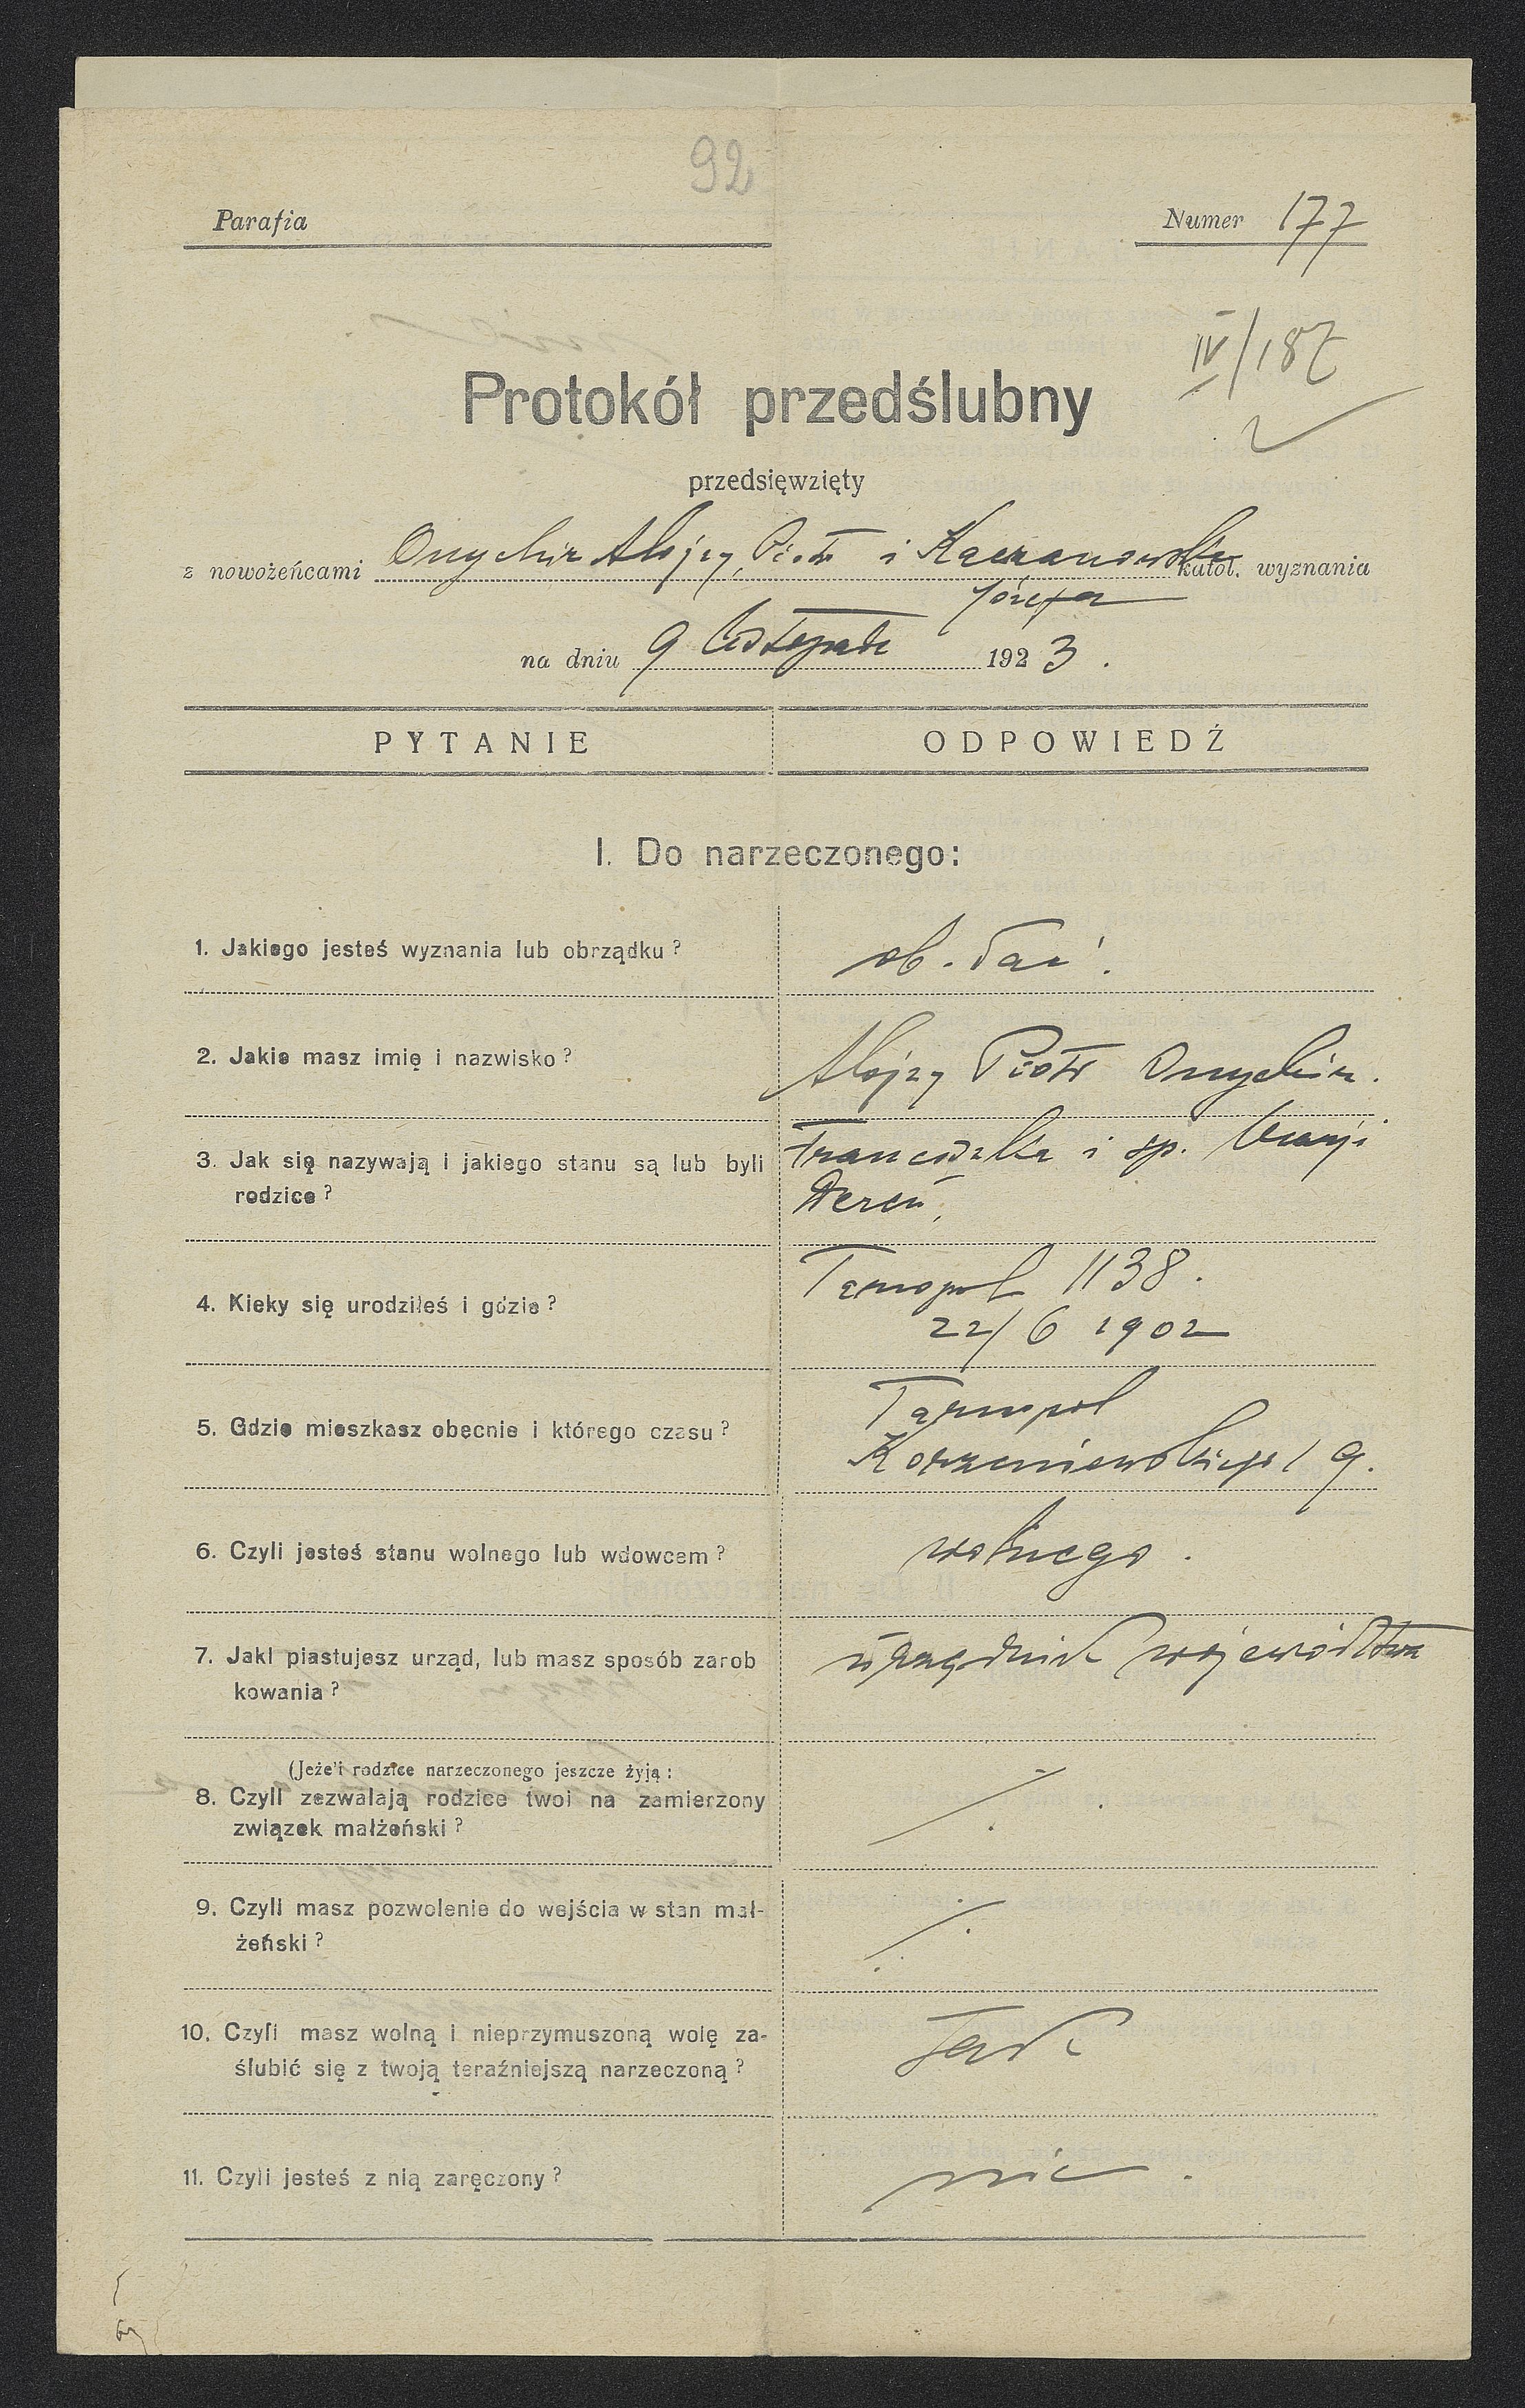 92
Parafia
Numer 177
IV/187
Protokół przedślubny
przedsięwzięty
z nowożeńcami Onychir Alojzy, Piotr i Kaczanowska katol. wyznania
Józefa
na dniu 9 listopada 1923.
PYTANIE ODPOWIEDŹ
I. Do narzeczonego:
1. Jakiego jesteś wyznania lub obrządku? ob. łać.
2. Jakie masz imię i nazwisko? Alojzy Piotr Onychir.
3. Jak się nazywają i jakiego stanu są lub byli Franciszka i śp. Marji
rodzice? Dereń,
4. Kieky się urodziłeś i gdzie? Tarnopol 1138.
22/6 1902
5. Gdzie mieszkasz obecnie i którego czasu? Tarnopol
Korzeniowskiego / 9.
6. Czyli jesteś stanu wolnego lub wdowcem? wolnego.
7. Jaki piastujesz urząd, lub masz sposób zarob urzędnik województwa
kowania?
(Jeże'i rodzice narzeczonego jeszcze żyją:
8. Czyli zezwalają rodzice twoi na zamierzony
związek małżeński?
9. Czyli masz pozwolenie do wejścia w stan mał-
żeński?
10. Czyli masz wolną i nieprzymuszoną wolę za- Tak
ślubić się z twoją teraźniejszą narzeczoną?
11. Czyli jesteś z nią zaręczony? nie.